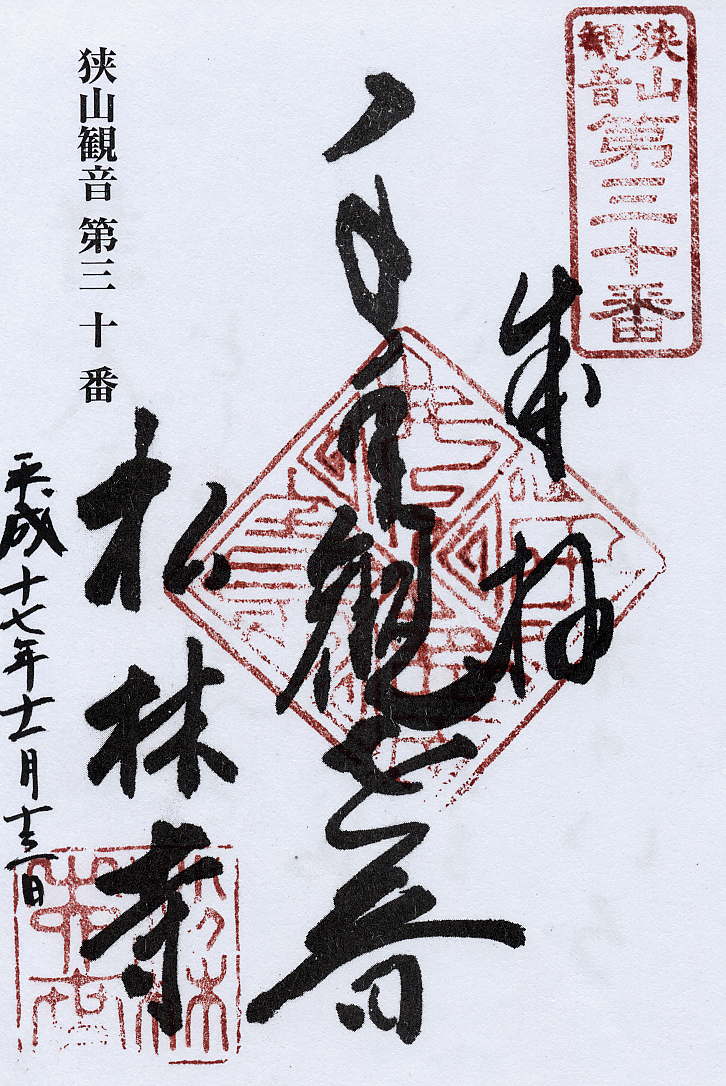 狭山観音
第三十番
奉拝
観世音
狭山観音 第三十番
松林寺
平成十七年十一月